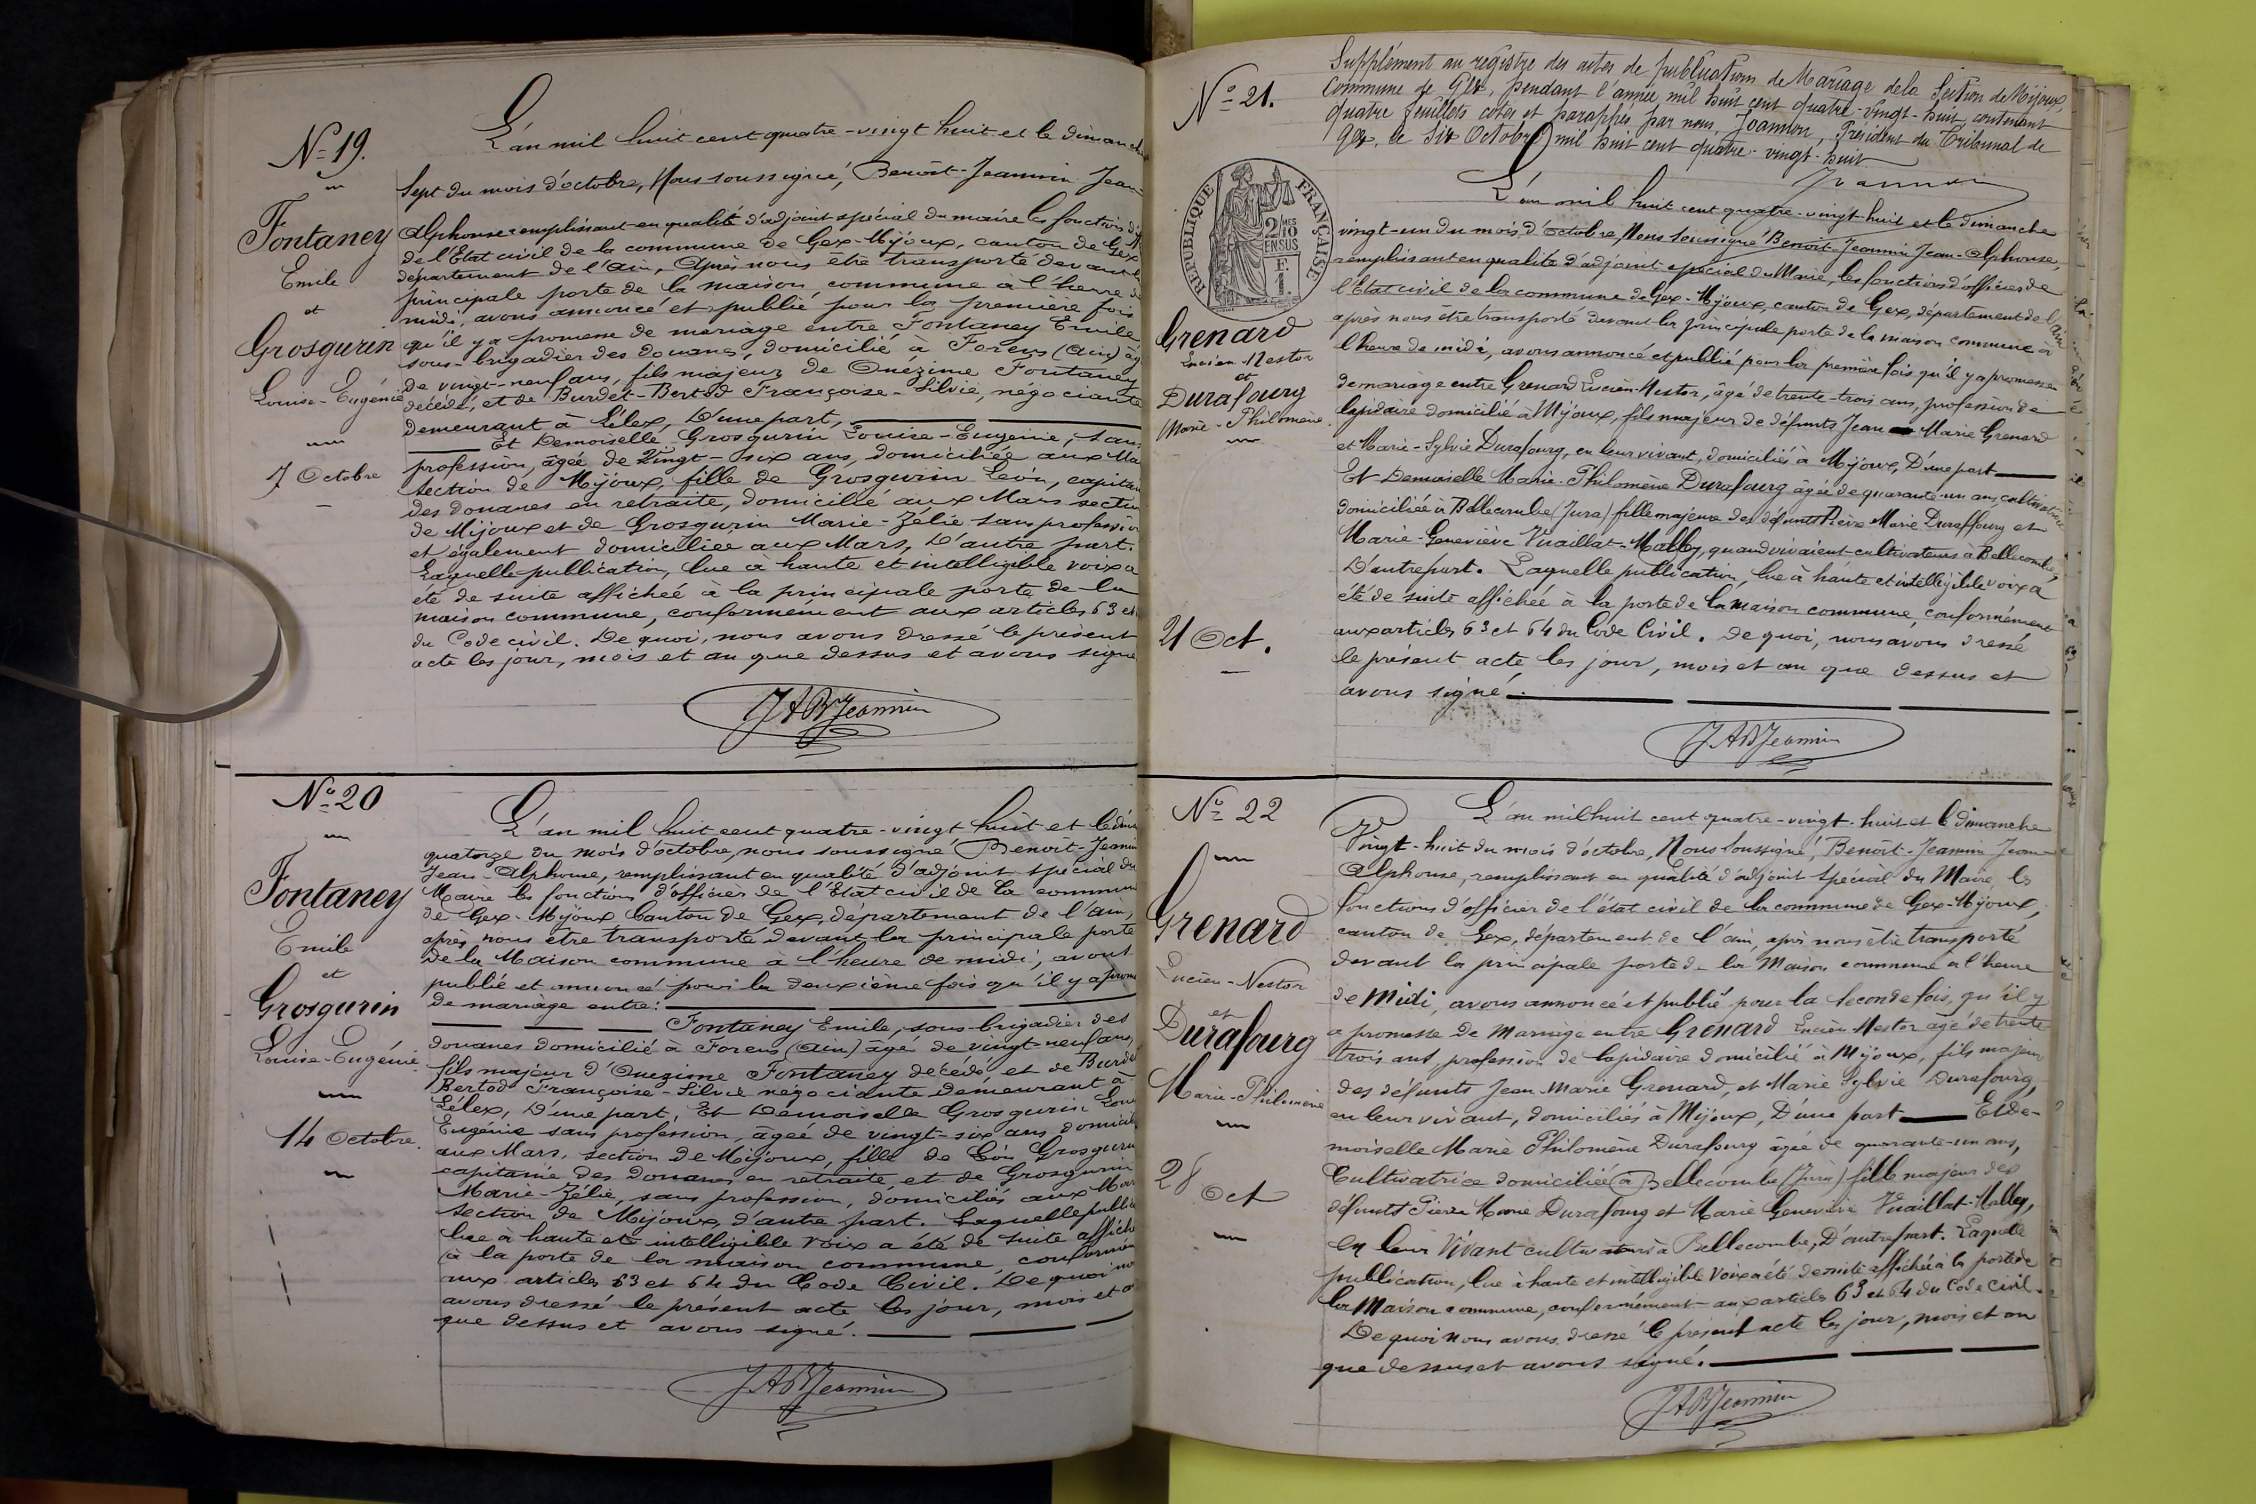 N° 19.
Fontaney
Emile
et
Grosgurin
Louise-Eugénie
7 Octobre
L'an mil huit cent quatre-vingt huit et le dimanche
Sept du mois d'octobre, Nous soussigné, Benoît-Jeannin Jean-
Alphonse remplissant en qualité d'adjoint spécial du maire les fonctions d'
de l'Etat civil de la commune de Gex-Mijoux, canton de Gex
département de l'ain, Après nous être transporté devant l
principale porte de la maison commune à l'heure d
midi, avons annoncé et publié pour la première fois
qu'il y a promesse de mariage entre Fontaney Emile
sous-brigadier des douanes, domicilié à Forens (Ain) âg
de vingt-neuf ans, fils majeur de Onezime Fontaney
décédé, et de Burdet-Bertod Françoise-Silvie, négociante
demeurant à Lélex, D'une part,
Et Demoiselle Grosgurin Louise-Eugénie, sans
profession, âgée de Vingt-six ans, domiciliée aux Ma
section de Mijoux, fille de Grosgurin Léon, capitain
des douanes en retraite, domicilié aux Mars sectio
de Mijoux et de Grosgurin Marie-Zélie sans professio
et également domiciliée aux Mars, D'autre part.
Laquelle publication, lue à haute et intelligible voix a
été de suite affichée à la principale porte de la
maison commune, conformément aux articles 63 et
du Code civil. De quoi, nous avons dressé le présent
acte les jour, mois et an que dessus et avons signé
JABJeannin
N° 20
Fontaney
Emile
et
Grosgurin
Louise-Eugénie.
14 Octobre.
L'an mil huit cent quatre-vingt huit et le dim
quatorze du mois d'octobre, nous soussigné Benoît-Jeannin
Jean-Alphonse, remplissant en qualité d'adjoint spécial du
Maire les fonctions d'officier de l'Etat civil de la commune
de Gex-Mijoux Canton de Gex, département de l'ain,
après nous être transporté devant la principale porte
de la Maison commune à l'heure de midi, avons
publié et annoncé pour la deuxième fois qu'il y a prome
de mariage entre:
Fontaney Emile, sous-brigadier des
douanes domicilié à Forens (Ain) âgé de vingt-neuf ans,
fils majeur d'Onezime Fontaney décédé et de Burde
Bertod Françoise-Silvie négociante demeurant à
Lélex, D'une part, Et Demoiselle Grosgurin Loui
Eugénie sans profession, âgée de vingt-six ans domicili
aux Mars, section de Mijoux, fille de Léon Grosgurin
capitaine des Douanes en retraite, et de Grosgurin
Marie-Zélie, sans profession, domiciliés aux Mar
section de Mijoux, d'autre part. Laquelle public
lue à haute et intelligible voix a été de suite affiché
à la porte de la maison commune, conformém
aux articles 63 et 64 du Code Civil. De quoi no
avons dressé le présent acte les jour, mois et a
que dessus et avons signé.
JABJeannin
Supplément au registre des actes de publications de Mariage de la Section de Mijoux,
Commune de Gex, pendant l'année mil huit cent quatre-vingt-huit, contenant
quatre feuillets cotés et paraphés par nous, Joannon, Président du Tribunal de
Gex, le Six Octobre mil huit cent quatre-vingt-huit
Joannon
N° 21.
RÉPUBLIQUE FRANÇAISE
2/10 MES
EN SUS
1 F.
Grenard
Lucien Nestor
et
Durafourg
Marie-Philomène
21 Oct.
L'an mil huit cent quatre-vingt-huit et le dimanche
vingt-un du mois d'octobre, Nous soussigné Benoit-Jeannin Jean-Alphonse,
remplissant en qualité d'adjoint spécial du Maire, les fonctions d'officier de
l'Etat civil de la commune de Gex-Mijoux, canton de Gex, département de l'ain
après nous être transporté devant la principale porte de la maison commune à
l'heure de midi, avons annoncé et publié pour la première fois qu'il y a promesse
de mariage entre Grenard Lucien-Nestor, âgé de trente-trois ans, profession de
lapidaire domicilié à Mijoux, fils majeur de défunts Jean Marie Grenard
et Marie-Sylvie Durafourg, en leur vivant, domiciliés à Mijoux, D'une part
Et Demoiselle Marie-Philomène Durafourg âgée de quarante-un ans, cultivatrice
domiciliée à Bellecombe (Jura) fille majeure des défunts Pierre Marie Duraffourg et
Marie-Geneviève Vuaillat-Malley, quand vivaient cultivateurs à Bellecombe,
D'autre part. Laquelle publication, lue à haute et intelligible voix a
été de suite affichée à la porte de la maison commune, conformément
aux articles 63 et 64 du Code Civil. De quoi, nous avons dressé
le présent acte les jour, mois et an que dessus et
avons signé.
JABJeannin
N° 22
Grenard
Lucien-Nestor
et
Durafourg
Marie-Philomène
28 Oct
L'an mil huit cent quatre-vingt-huit et le dimanche
Vingt-huit du mois d'octobre, Nous soussigné, Benoît-Jeannin Jean-
Alphonse, remplissant en qualité d'adjoint spécial du Maire les
fonctions d'officier de l'état civil de la commune de Gex-Mijoux,
canton de Gex, département de l'ain, après nous être transporté
devant la principale porte de la Maison commune à l'heure
de Midi, avons annoncé et publié pour la seconde fois, qu'il y
a promesse de mariage entre Grenard Lucien-Nestor âgé de trente
trois ans, profession de lapidaire domicilié à Mijoux, fils majeur
des défunts Jean-Marie Grenard, et Marie Sylvie Durafourg,
en leur vivant, domiciliés à Mijoux, D'une part Et de-
moiselle Marie Philomène Durafourg âgée de quarante-un ans,
Cultivatrice domiciliée à Bellecombe (Jura) fille majeure des
défunts Pierre Marie Durafourg et Marie Geneviève Vuaillat-Malley,
en leur Vivant cultivateurs à Bellecombe, D'autre part. Laquelle
publication, lue à haute et intelligible voix a été de suite affichée à la porte de
la Maison commune, conformément aux articles 63 et 64 du Code Civil.
De quoi nous avons dressé le présent acte les jour, mois et an
que dessus et avons signé.
JABJeannin